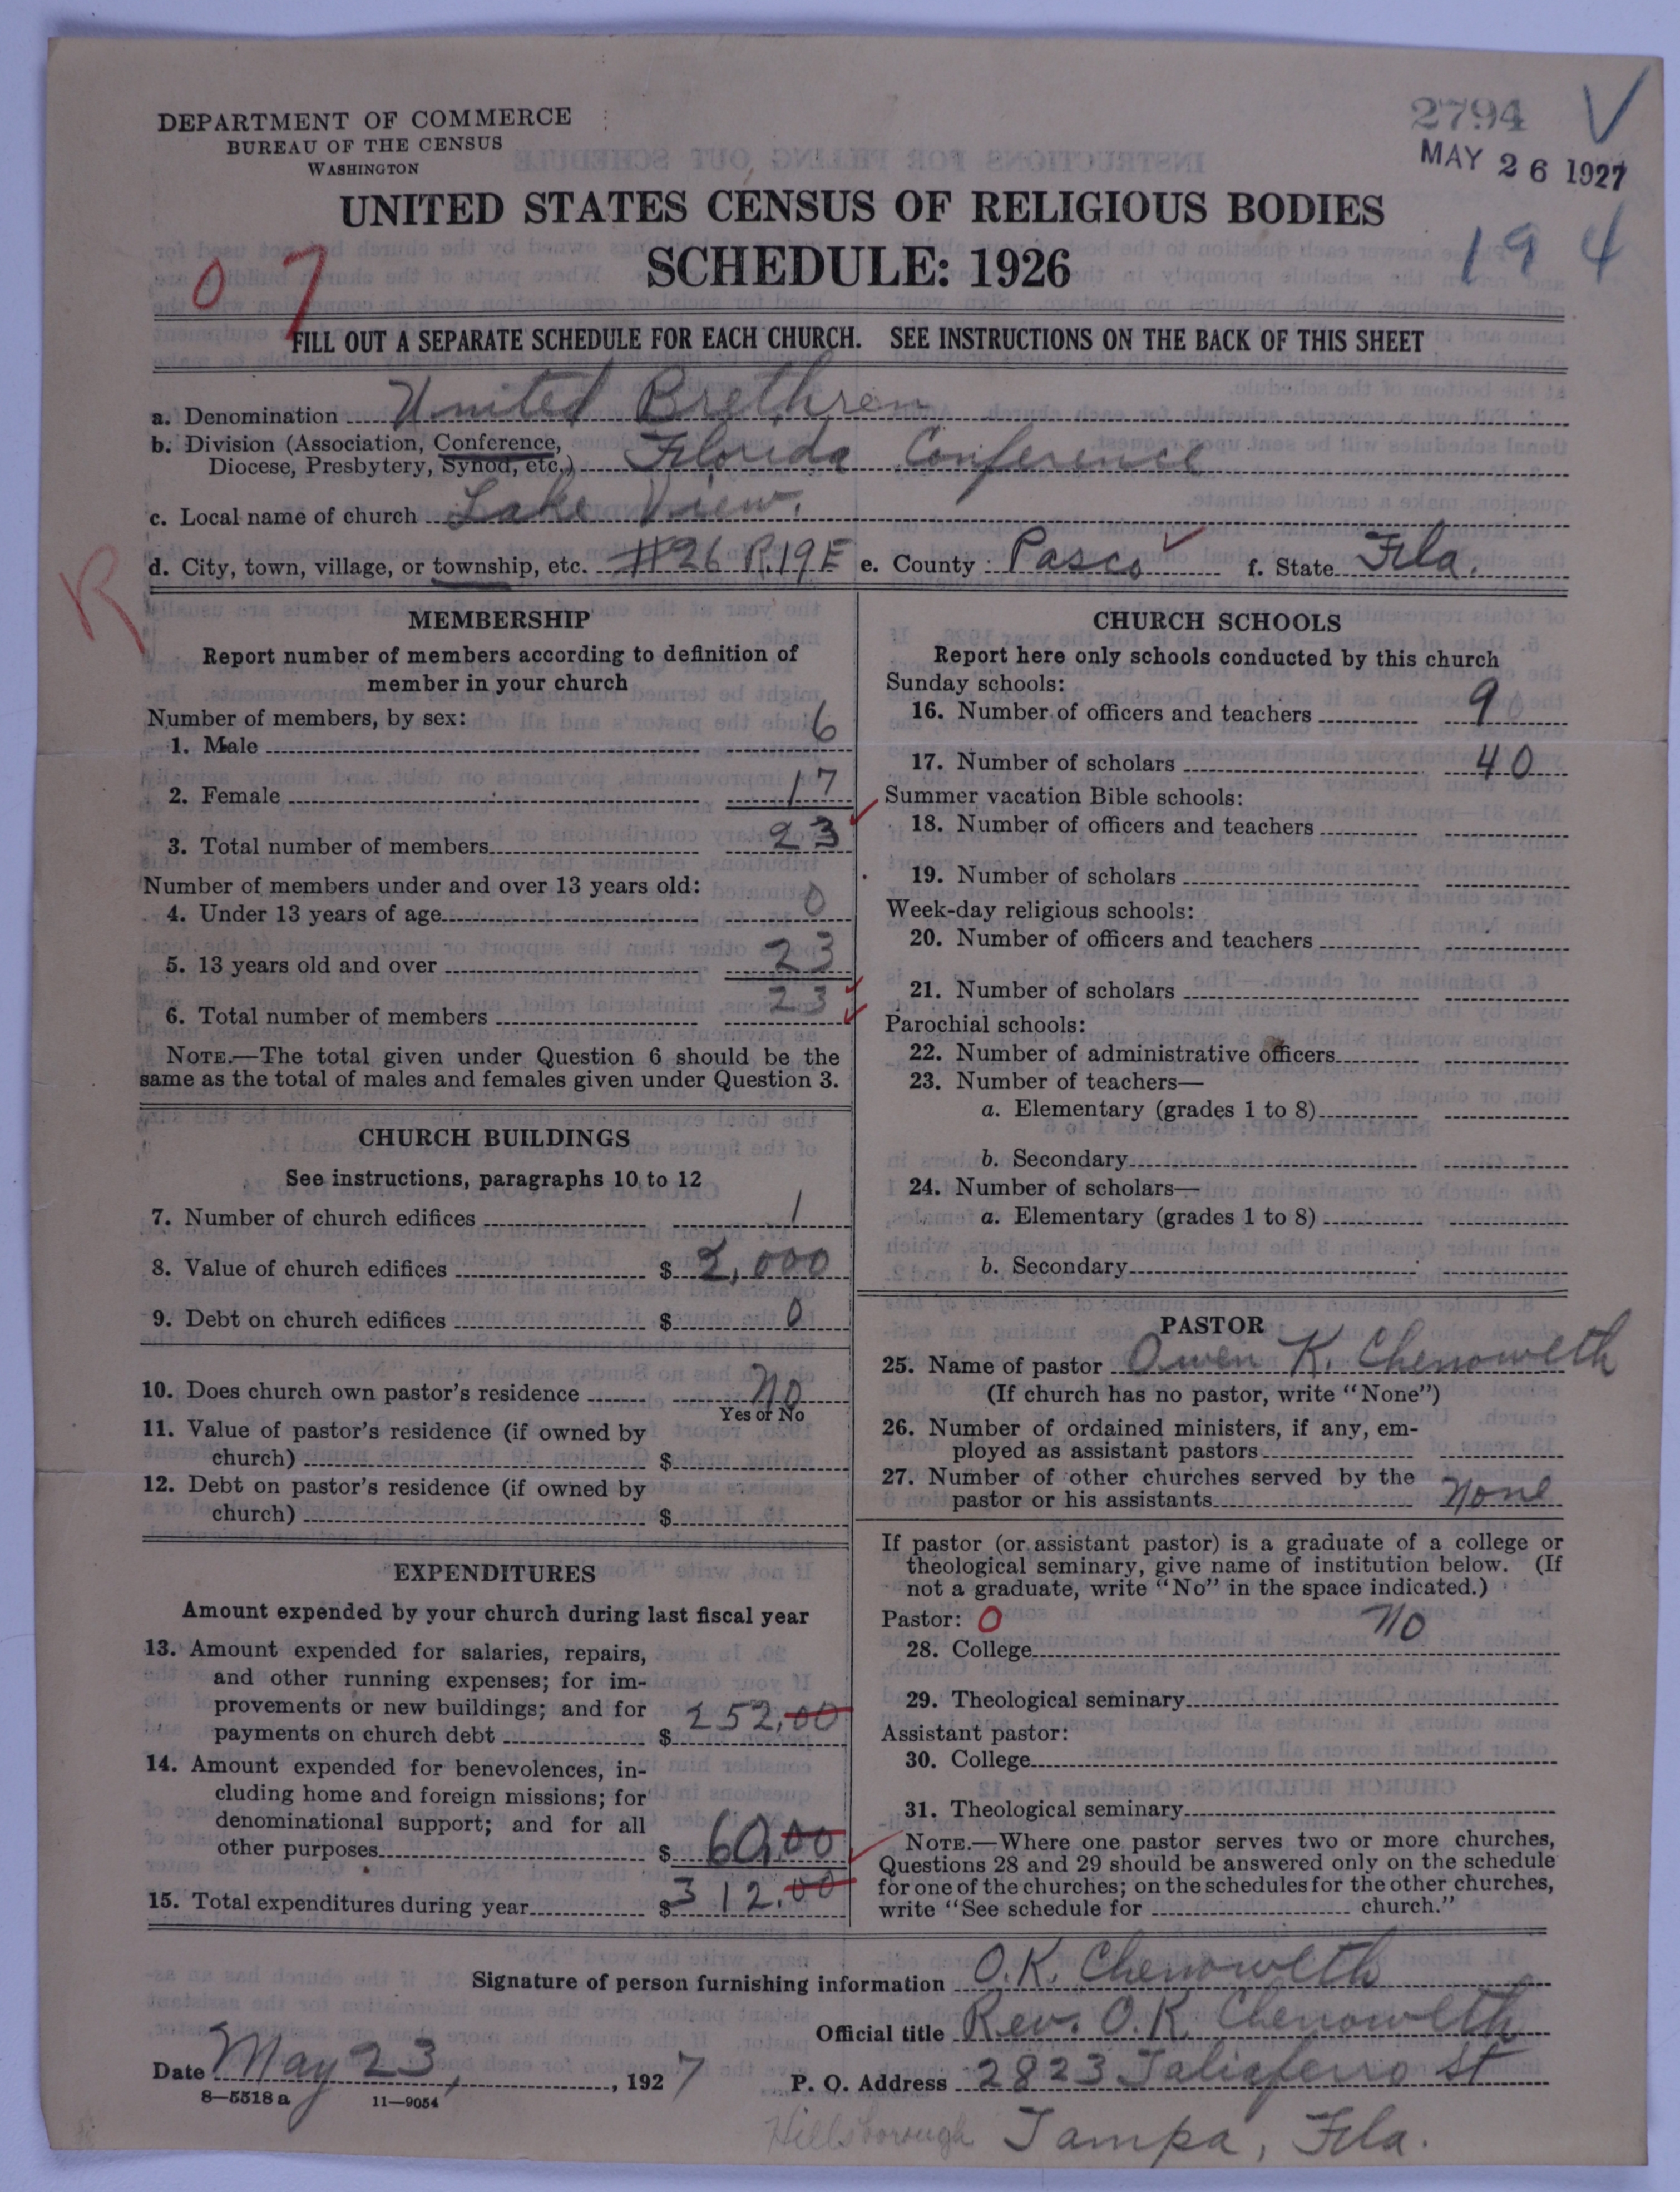 DEPARTMENT OF COMMERCE
BUREAU OF THE CENSUS
WASHINGTON
2794 V
MAY 26 1927
UNITED STATES CENSUS OF RELIGIOUS BODIES
194
SCHEDULE: 1926
07
FILL OUT A SEPARATE SCHEDULE FOR EACH CHURCH. SEE INSTRUCTIONS ON THE BACK OF THIS SHEET
a. Denomination United Brethren
b. Division (Association, Conference,
Diocese, Presbytery, Synod, etc.) Florida Conference
c. Local name of church Lake View.
d. City, town, village, or township, etc. #26 R.19E e. County Pasco f. State Fla.
R
MEMBERSHIP
Report number of members according to definition of
member in your church
Number of members, by sex:
1. Male 6
2. Female 17
3. Total number of members 23
Number of members under and over 13 years old:
4. Under 13 years of age 0
5. 13 years old and over 23
6. Total number of members 23
NOTE.—The total given under Question 6 should be the
same as the total of males and females given under Question 3.
CHURCH BUILDINGS
See instructions, paragraphs 10 to 12
7. Number of church edifices 1
8. Value of church edifices $ 2,000
9. Debt on church edifices $ 0
10. Does church own pastor's residence No
Yes or No
11. Value of pastor's residence (if owned by
church) $
12. Debt on pastor's residence (if owned by
church) $
EXPENDITURES
Amount expended by your church during last fiscal year
13. Amount expended for salaries, repairs,
and other running expenses; for im-
provements or new buildings; and for
payments on church debt $ 252.00
14. Amount expended for benevolences, in-
cluding home and foreign missions; for
denominational support; and for all
other purposes $ 60.00
15. Total expenditures during year $ 312.00
CHURCH SCHOOLS
Report here only schools conducted by this church
Sunday schools:
16. Number of officers and teachers 9
17. Number of scholars 40
Summer vacation Bible schools:
18. Number of officers and teachers
19. Number of scholars
Week-day religious schools:
20. Number of officers and teachers
21. Number of scholars
Parochial schools:
22. Number of administrative officers
23. Number of teachers—
a. Elementary (grades 1 to 8)
b. Secondary
24. Number of scholars—
a. Elementary (grades 1 to 8)
b. Secondary
PASTOR
25. Name of pastor Owen K. Chenoweth
(If church has no pastor, write "None")
26. Number of ordained ministers, if any, em-
ployed as assistant pastors
27. Number of other churches served by the
pastor or his assistants None
If pastor (or assistant pastor) is a graduate of a college or
theological seminary, give name of institution below. (If
not a graduate, write "No" in the space indicated.)
Pastor: 0
28. College No
29. Theological seminary
Assistant pastor:
30. College
31. Theological seminary
NOTE.—Where one pastor serves two or more churches,
Questions 28 and 29 should be answered only on the schedule
for one of the churches; on the schedules for the other churches,
write "See schedule for church."
Signature of person furnishing information O.K. Chenoweth
Official title Rev. O.K. Chenoweth
Date May 23, 1927 P. O. Address 2823 Taliaferro St
8—5518a 11—9054
Hillsborough Tampa, Fla.